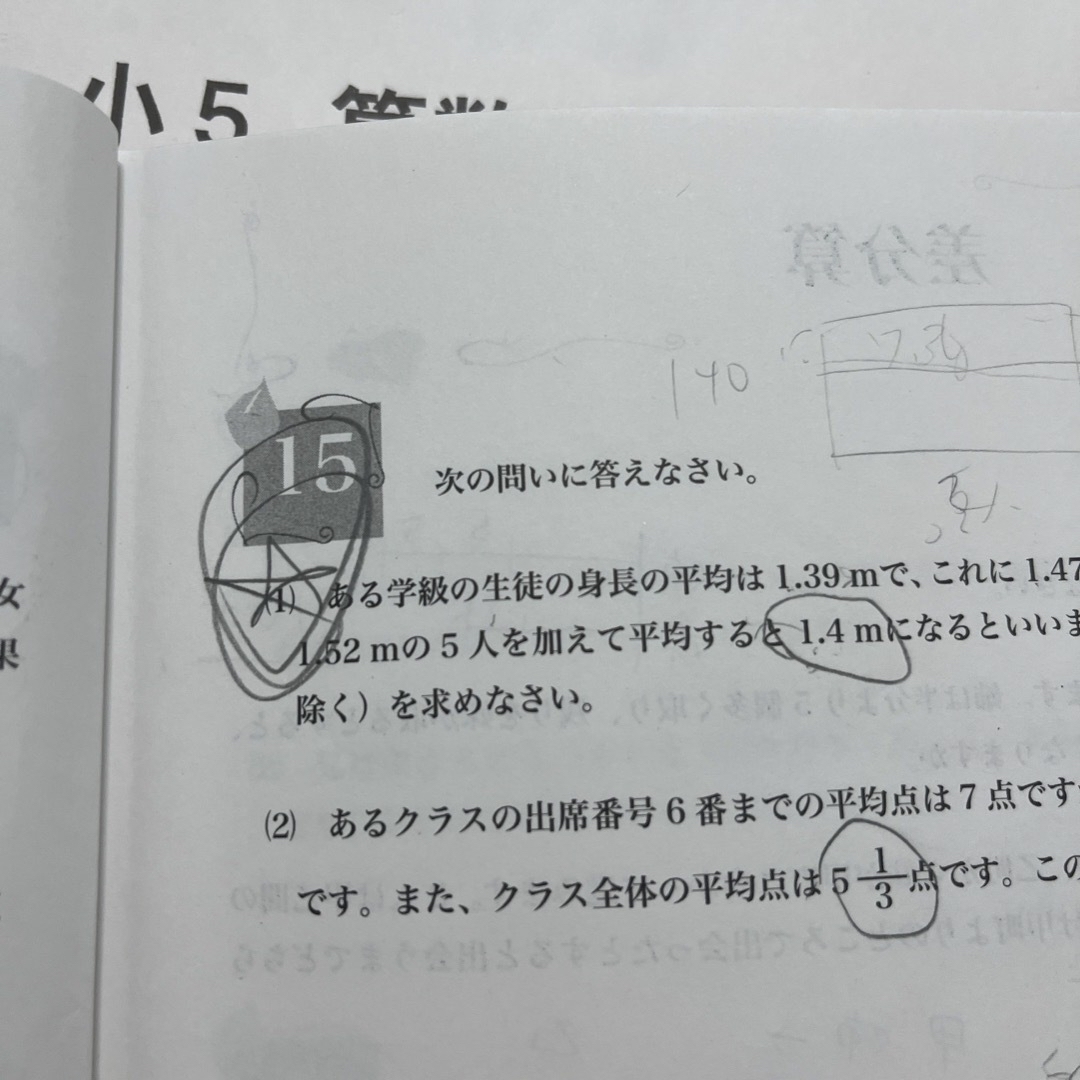 小5 算数
140
15
次の問いに答えなさい。
女
(1) ある学級の生徒の身長の平均は1.39mで、これに1.47
果
1.52mの5人を加えて平均すると1.4mになるといいま
除く）を求めなさい。
(2) あるクラスの出席番号6番までの平均点は7点です
です。また、クラス全体の平均点は5 1/3 点です。この